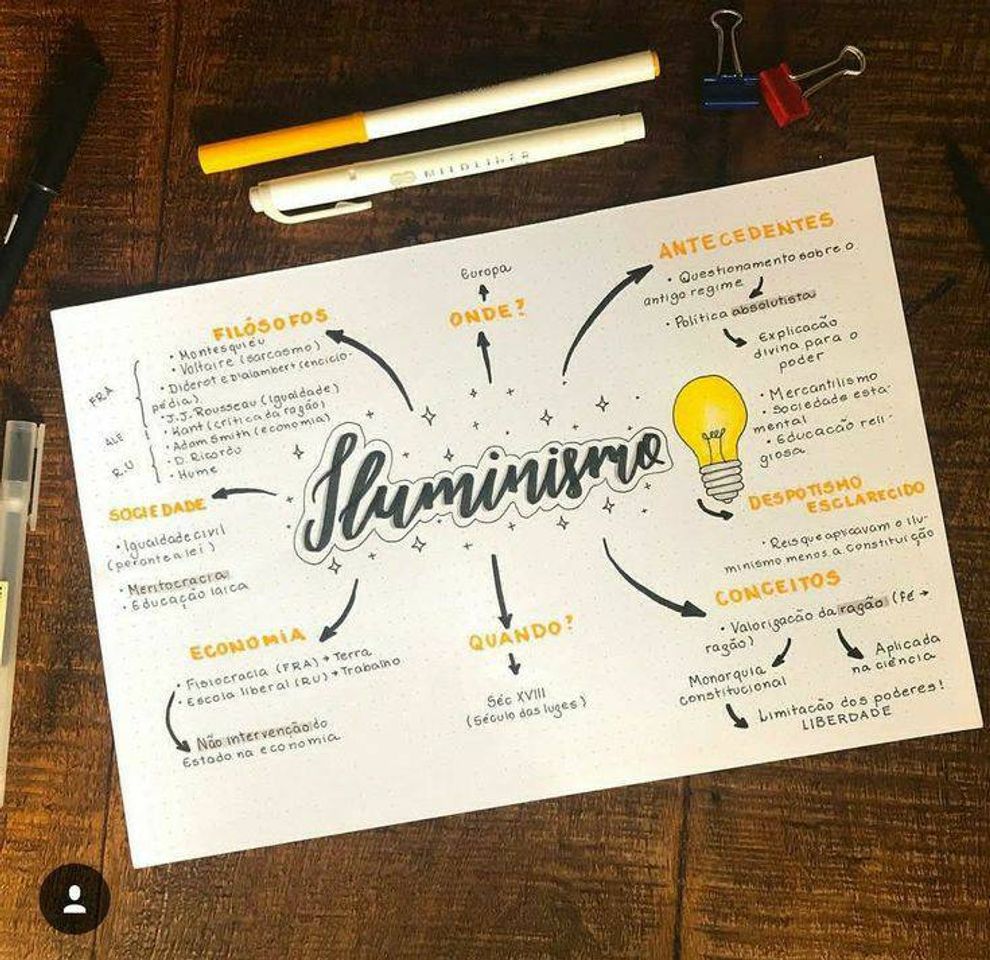 MILDLINER
Iluminismo
FILÓSOFOS
FRA
• Montesquieu
• Voltaire (sarcasmo)
• Diderot e Dialambert (enciclo-
pédia)
• J.J. Rousseau (Igualdade)
ALE
• Kant (crítica da razão)
R.U
• Adam Smith (economia)
• D. Ricardo
• Hume
ONDE?
Europa
ANTECEDENTES
• Questionamento sobre o
antigo regime
• Política absolutista
Explicação
divina para o
poder
• Mercantilismo
• Sociedade esta-
mental
• Educação reli-
giosa
DESPOTISMO
ESCLARECIDO
• Reis que aplicavam o ilu-
minismo menos a constituição
CONCEITOS
• Valorização da razão (fé →
razão)
Monarquia
constitucional
Aplicada
na ciência
Limitação dos poderes!
LIBERDADE
QUANDO?
Séc XVIII
(Século das luzes)
ECONOMIA
• Fisiocracia (FRA) → Terra
• Escola liberal (RU) → Trabalho
Não intervenção do
Estado na economia
SOCIEDADE
• Igualdade civil
(perante a lei)
• Meritocracia
• Educação laica